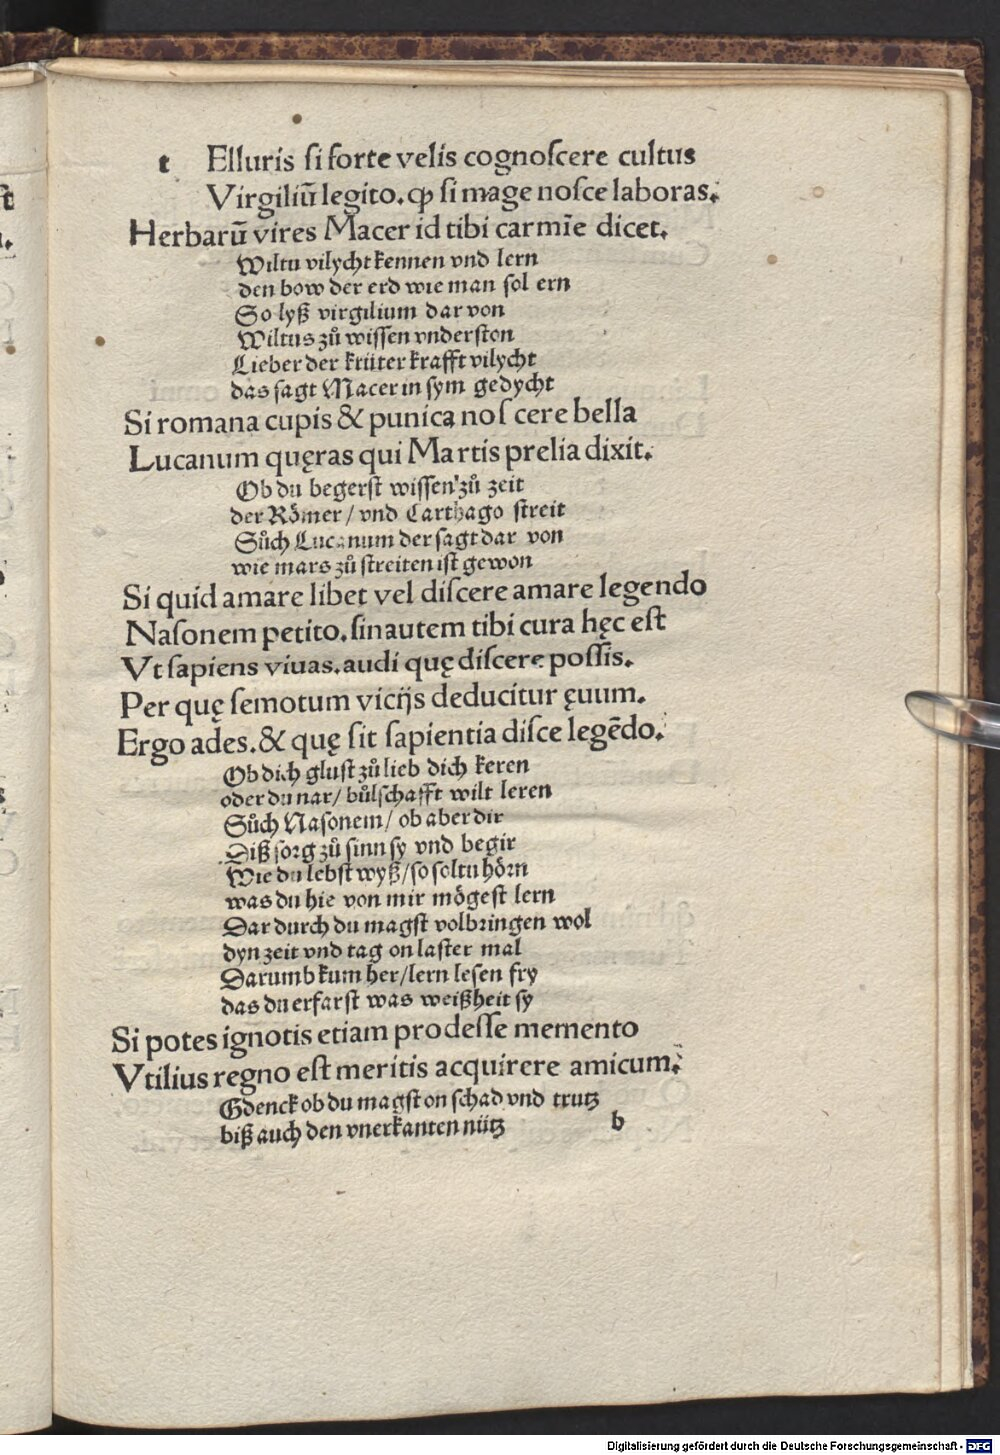 t Elluris si forte velis cognoscere cultus
Virgiliū legito. ꝙ si mage nosce laboras.
Herbarū vires Macer id tibi carmīe dicet.
Wiltu vilycht kennen vnd lern
den bow der erd wie man sol ern
So lyß virgilium dar von
Wiltus zů wissen vnderston
Lieber der krüter krafft vilycht
das sagt Macer in sym gedycht
Si romana cupis & punica noscere bella
Lucanum quęras qui Martis prelia dixit.
Ob du begerst wissen zů zeit
der Römer / vnd Carthago streit
Sůch Lucanum der sagt dar von
wie mars zů streiten ist gewon
Si quid amare libet vel discere amare legendo
Nasonem petito. sinautem tibi cura hęc est
Vt sapiens viuas. audi quę discere possis.
Per quę semotum vicijs deducitur ęuum.
Ergo ades. & quę sit sapientia disce legēdo.
Ob dich glust zů lieb dich keren
oder du nar / bůlschafft wilt leren
Sůch Nasonem / ob aber dir
Diß sorg zů sinn sy vnd begir
Wie du lebst wyß / so soltu hörn
was du hie von mir mögest lern
Dar durch du magst volbringen wol
dyn zeit vnd tag on laster mal
Darumb kum her / lern lesen fry
das du erfarst was weißheit sy
Si potes ignotis etiam prodesse memento
Vtilius regno est meritis acquirere amicum.
Gdenck ob du magst on schad vnd trutz
biß auch den vnerkanten nütz b
Digitalisierung gefördert durch die Deutsche Forschungsgemeinschaft - DFG